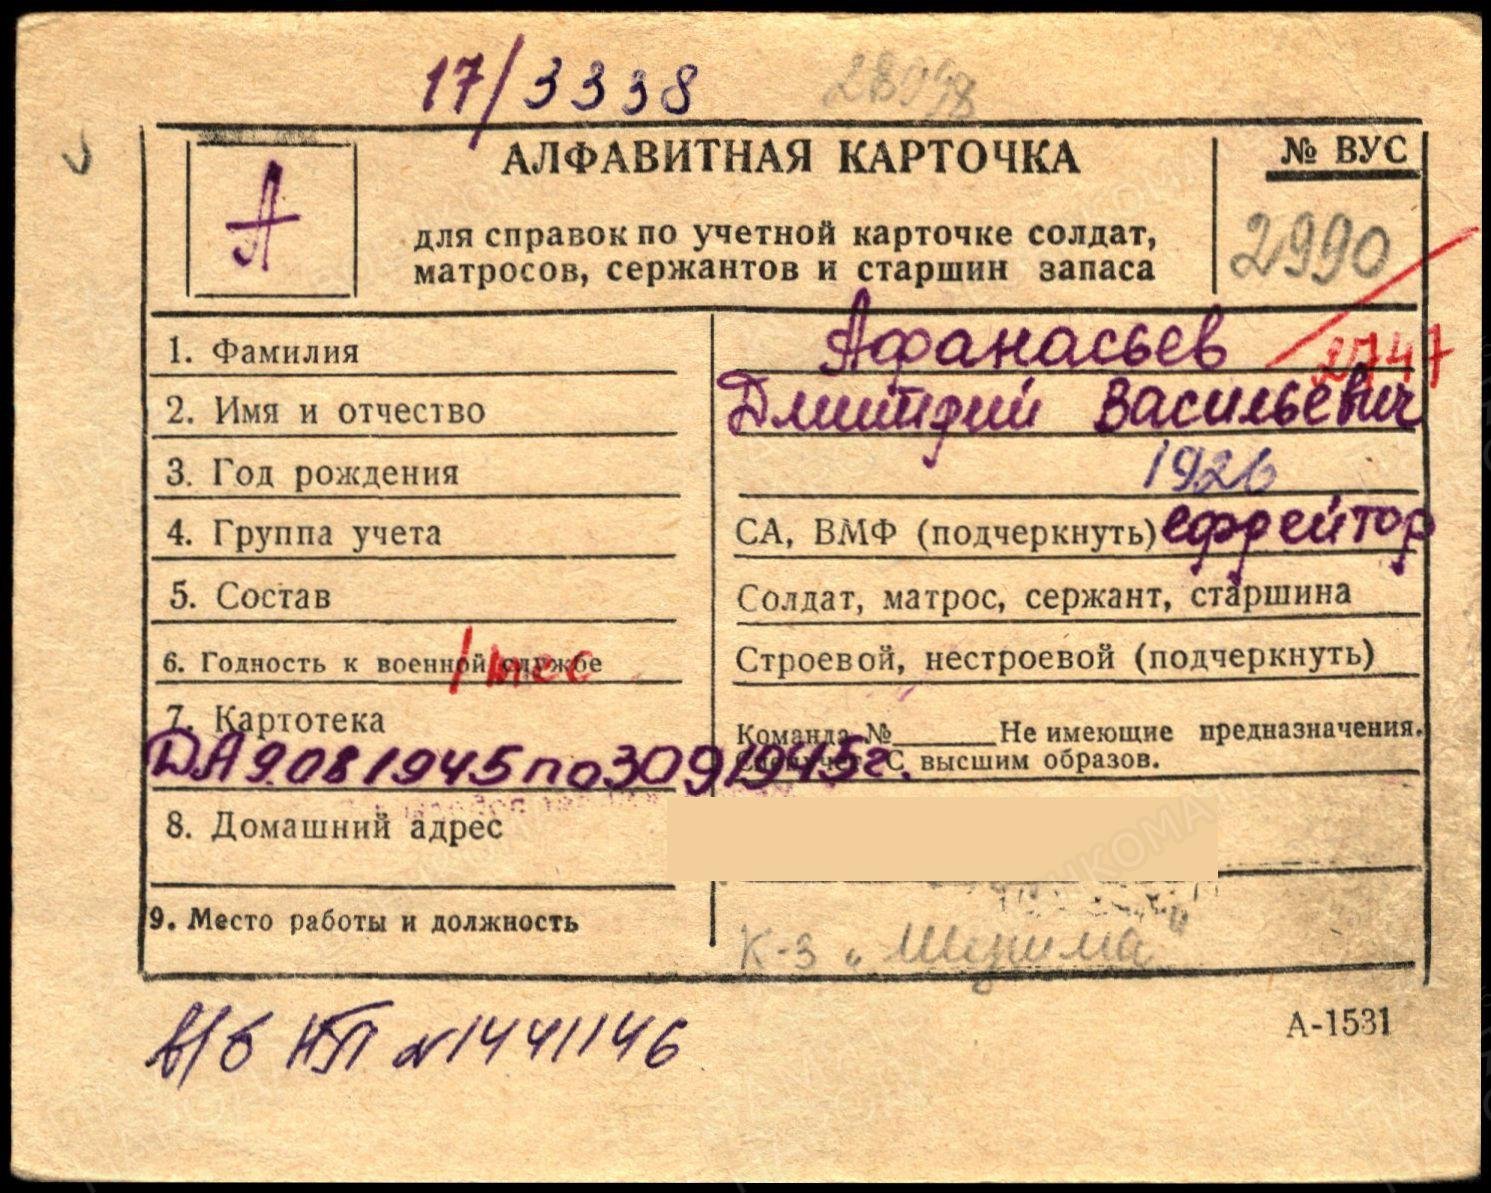 17/3338
А
АЛФАВИТНАЯ КАРТОЧКА
№ ВУС
для справок по учетной карточке солдат,
матросов, сержантов и старшин запаса
2990
1. Фамилия Афанасьев
2747
2. Имя и отчество Дмитрий Васильевич
3. Год рождения 1926
4. Группа учета СА, ВМФ (подчеркнуть) ефрейтор
5. Состав Солдат, матрос, сержант, старшина
6. Годность к военной службе Строевой, нестроевой (подчеркнуть)
7. Картотека Команда № Не имеющие предназначения.
С высшим образов.
ДА 9.08 1945 по 30 9 1945 г.
8. Домашний адрес
9. Место работы и должность К-з
в/б НП № 1441146
А-1531